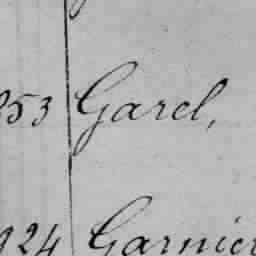 253 Garel,
924 Garnier